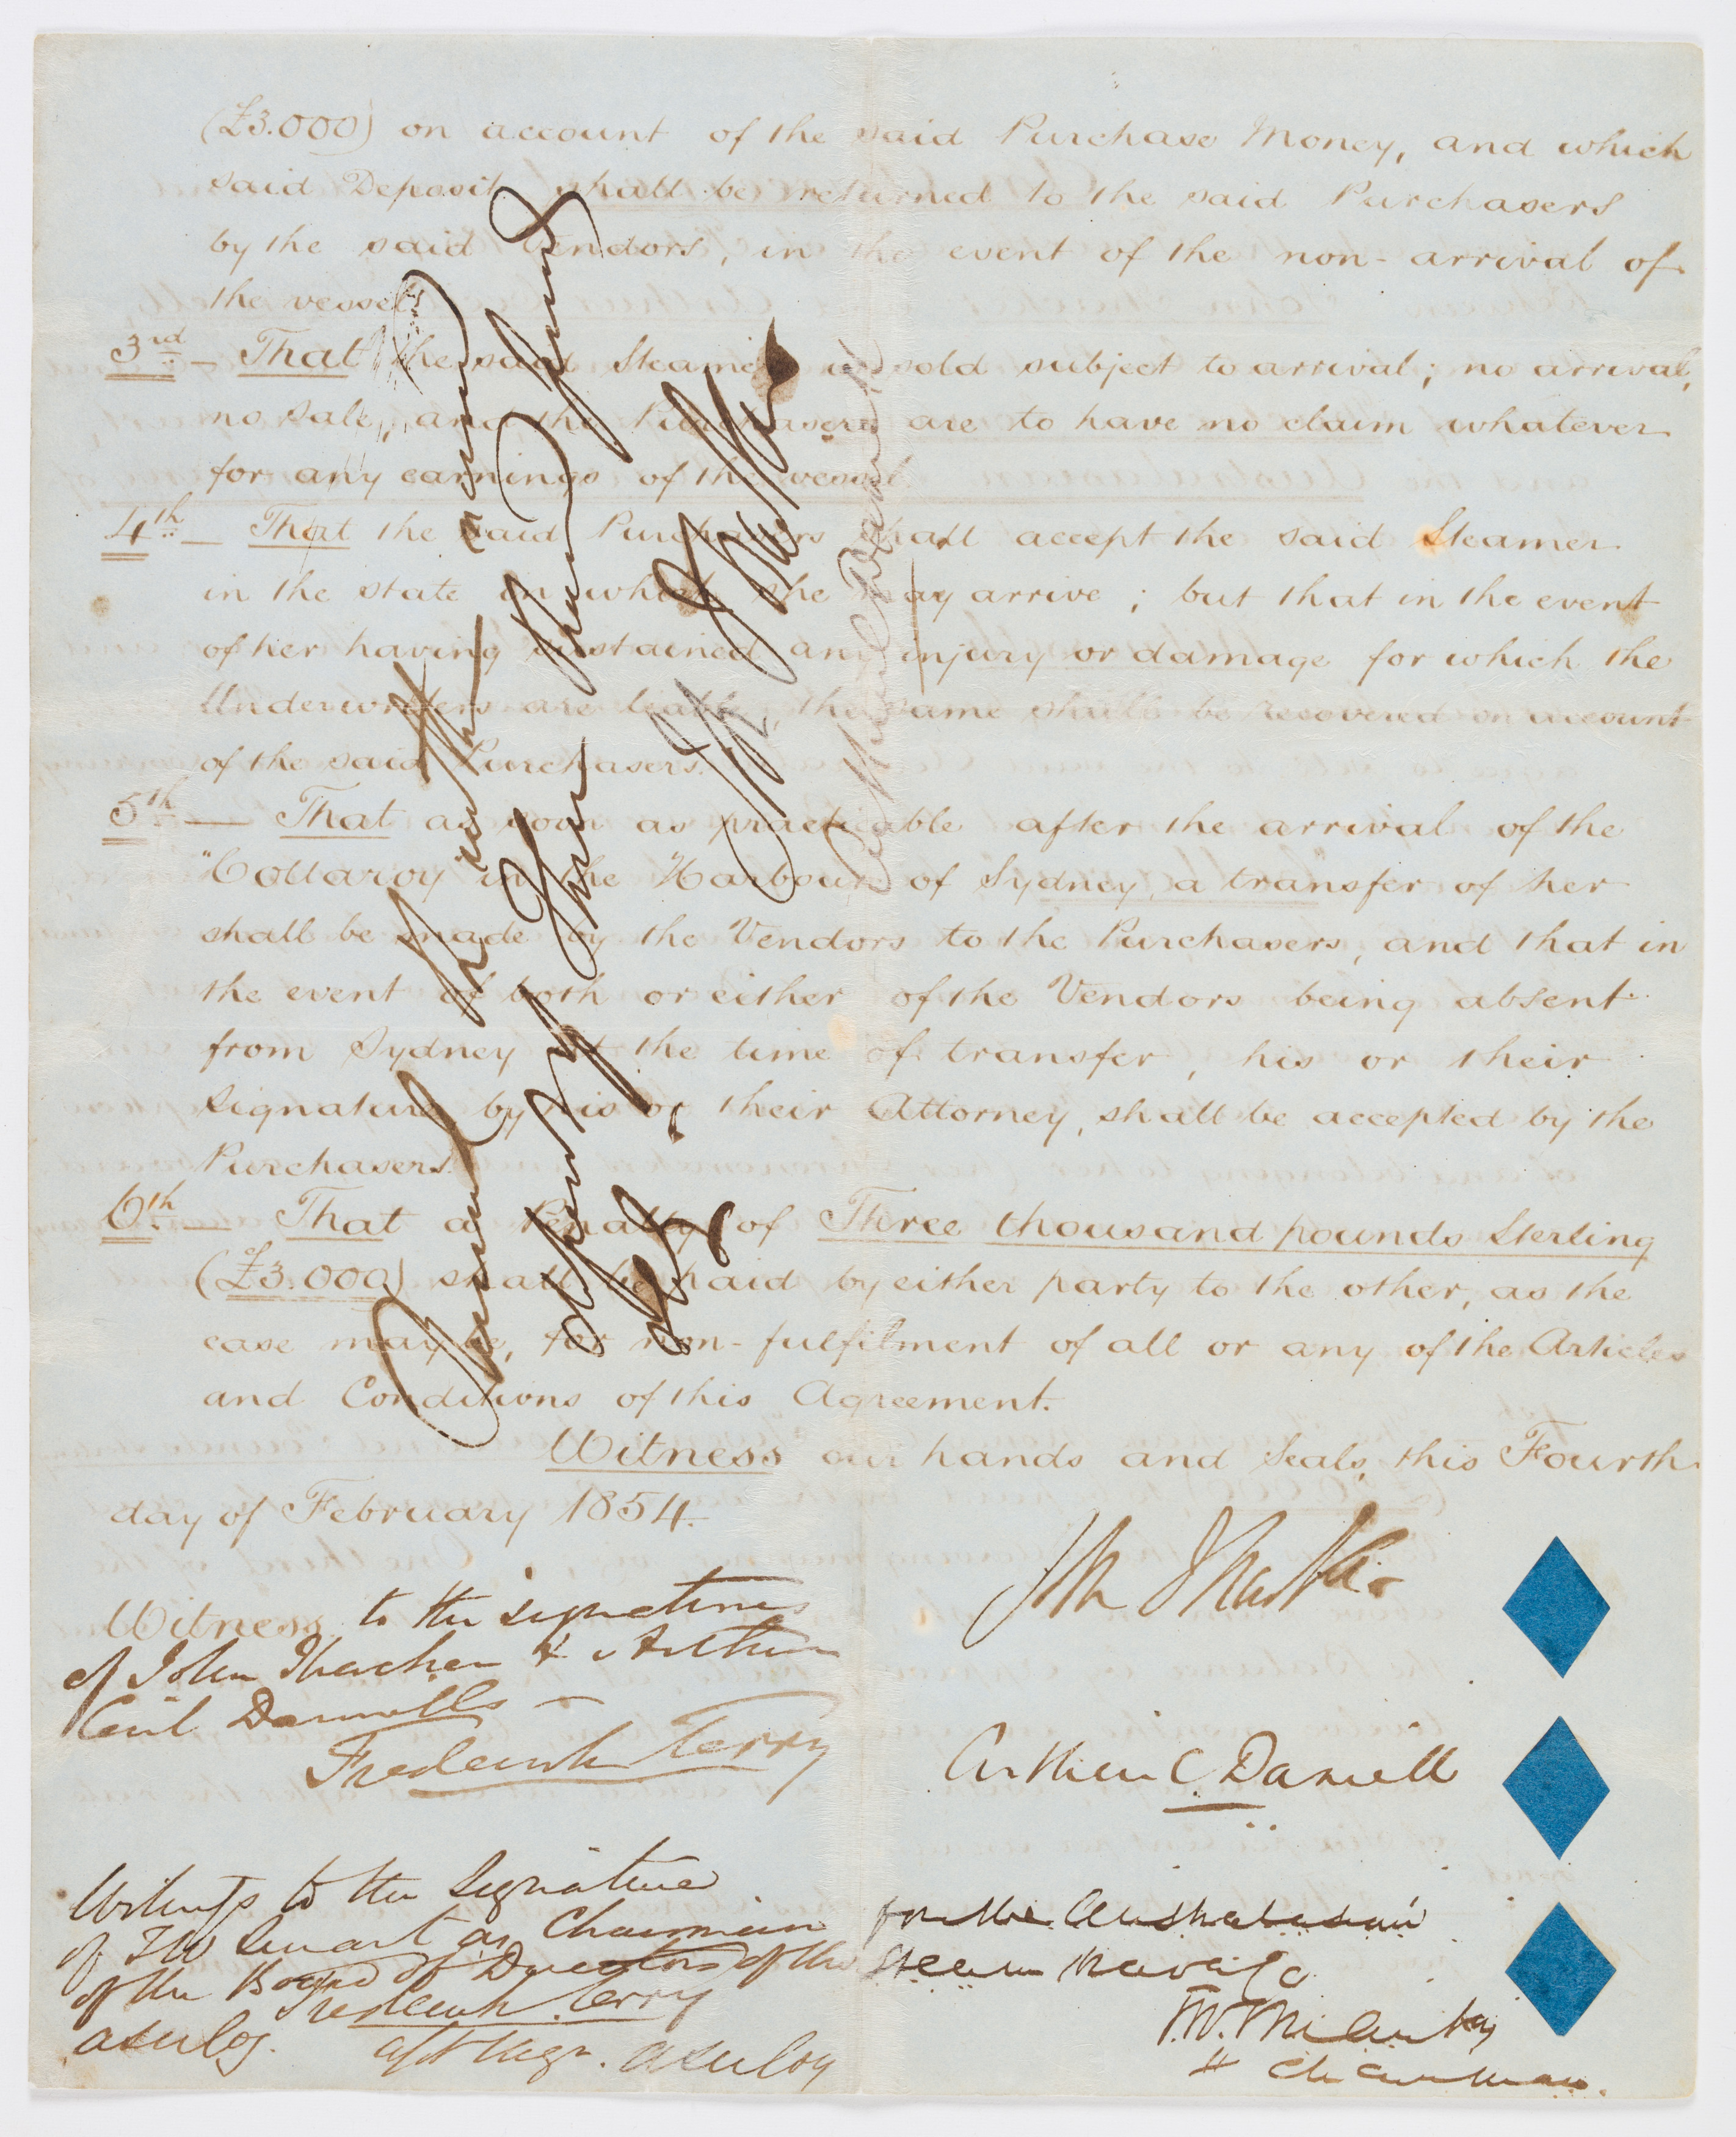 (£3.000) on account of the said Purchase Money, and which
said Deposit shall be returned to the said Purchasers
by the said Vendors, in the event of the non-arrival of
the vessel.
3rd — That the said Steamer is sold subject to arrival; no arrival,
no sale, and the Purchasers are to have no claim whatever
for any earnings of the vessel
4th — That the said Purchasers shall accept the said Steamer
in the state in which she may arrive; but that in the event
of her having sustained any injury or damage for which the
Underwriters are leable, the same shall be recovered on account
of the said Purchasers.
5th — That as soon as practicable after the arrival of the
"Collaroy" in the Harbour of Sydney, a transfer of her
shall be made by the Vendors to the Purchasers, and that in
the event of both or either of the Vendors being absent
from Sydney at the time of transfer, his or their
signature by his or their Attorney, shall be accepted by the
Purchasers.
6th — That a Penalty of Three thousand pounds Sterling
(£3.000) shall be paid by either party to the other, as the
case may be, for non-fulfilment of all or any of the Articles
and Conditions of this Agreement.
Witness our hands and Seals, this Fourth
day of February 1854.
Witness to the signatures
of John Thacker & Arthur
Cecil Daniell
Frederick Terry
John Thacker
Arthur C Daniell
Witness to the Signature
of as Chairman
of the Board of Directors of the
asnlog.
Frederick Terry
for the Australasian
Steam Nav. Co
Chairman.
Cancelled
John Thacker
Arthur C Daniell